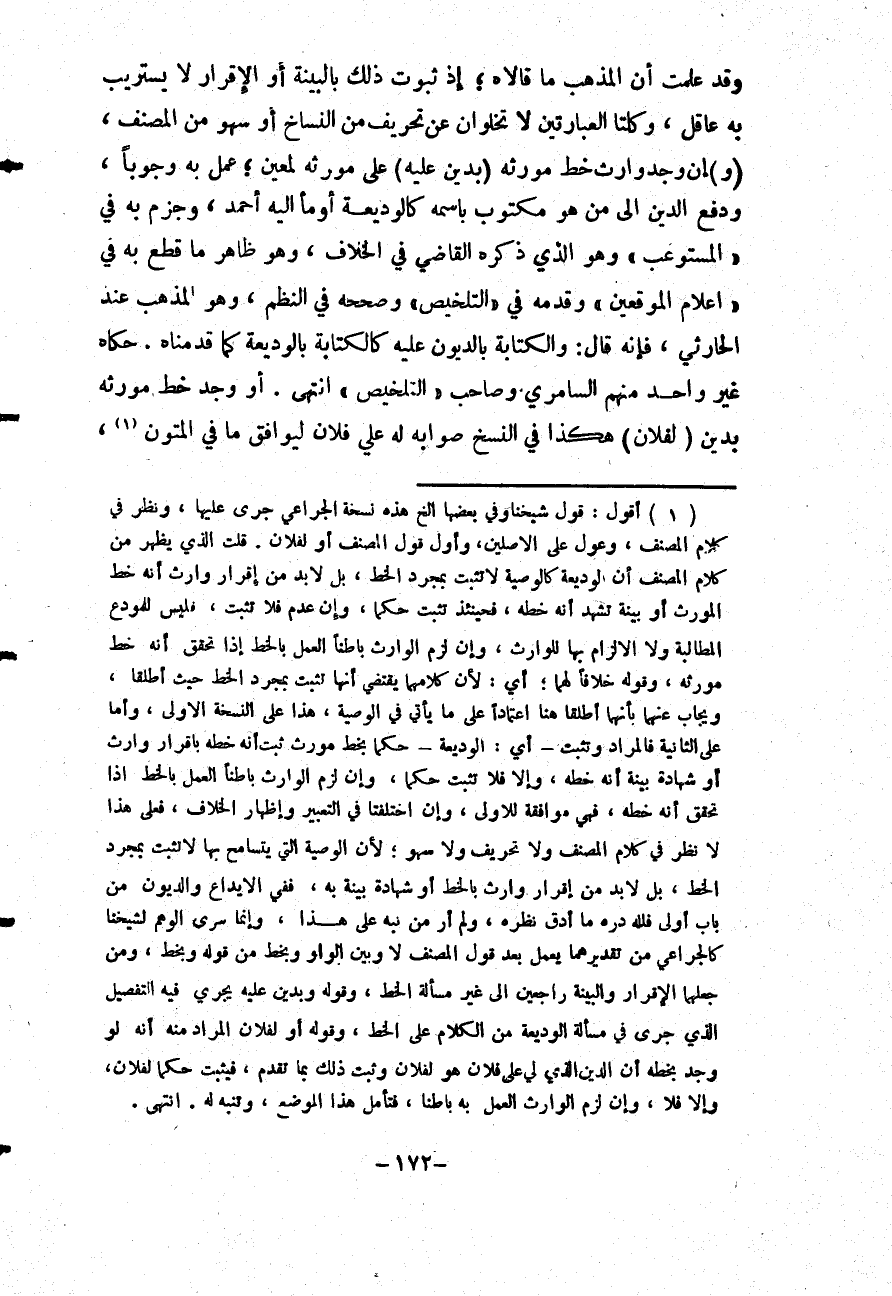 وقد علمت أن المذهب ما قالاه ؛ إذ ثبوت ذلك بالبينة أو الإقرار لا يستريب
به عاقل ، وكلتا العبارتين لا تخلوان عن تحريف من النساخ أو سهو من المصنف ،
(و)إن وجد وارث خط مورثه (بدين عليه) على مورثه لمعين ؛ عمل به وجوباً ،
ودفع الدين الى من هو مكتوب باسمه كالوديعة أومأ اليه أحمد ، وجزم به في
« المستوعب » وهو الذي ذكره القاضي في الخلاف ، وهو ظاهر ما قطع به في
« اعلام الموقعين » وقدمه في «التلخيص» وصححه في النظم ، وهو المذهب عند
الحارثي ، فإنه قال: والكتابة بالديون عليه كالكتابة بالوديعة كما قدمناه . حكاه
غير واحد منهم السامري وصاحب « التلخيص » انتهى . أو وجد خط مورثه
بدين ( لفلان) هكذا في النسخ صوابه له علي فلان ليوافق ما في المتون (١) ،
( ١ ) أقول : قول شيخنا وفي بعضها الخ هذه نسخة الجراعي جرى عليها ، ونظر في
كلام المصنف ، وعول على الاصلين، وأول قول المصنف أو لفلان . قلت الذي يظهر من
كلام المصنف أن الوديعة كالوصية لا تثبت بمجرد الخط ، بل لابد من إقرار وارث أنه خط
المورث أو بينة تشهد أنه خطه ، فحينئذ تثبت حكما ، وإن عدم فلا تثبت ، فليس للمودع
المطالبة ولا الالزام بها للوارث ، وإن لزم الوارث باطناً العمل بالخط إذا تحقق أنه خط
مورثه ، وقوله خلافاً لهما ؛ أي : لأن كلامهما يقتضي أنها تثبت بمجرد الخط حيث أطلقا ،
ويجاب عنهما بأنهما أطلقا هنا اعتماداً على ما يأتي في الوصية ، هذا على النسخة الاولى ، وأما
على الثانية فالمراد وتثبت – أي : الوديعة – حكما بخط مورث ثبت أنه خطه باقرار وارث
أو شهادة بينة أنه خطه ، وإلا فلا تثبت حكما ، وإن لزم الوارث باطناً العمل بالخط اذا
تحقق أنه خطه ، فهي موافقة للاولى ، وإن اختلفتا في التعبير وإظهار الخلاف ، فعلى هذا
لا نظر في كلام المصنف ولا تحريف ولا سهو ؛ لأن الوصية التي يتسامح بها لا تثبت بمجرد
الخط ، بل لابد من إقرار وارث بالخط أو شهادة بينة به ، ففي الايداع والديون من
باب أولى فلله دره ما أدق نظره ، ولم أر من نبه على هذا ، وإنما سرى الوهم لشيخنا
كالجراعي من تقديرهما يعمل بعد قول المصنف لا وبين الواو وبخط من قوله وبخط ، ومن
جعلهما الإقرار والبينة راجعين الى غير مسألة الخط ، وقوله وبدين عليه يجري فيه التفصيل
الذي جرى في مسألة الوديعة من الكلام على الخط ، وقوله أو لفلان المراد منه أنه لو
وجد بخطه أن الدين الذي لي على فلان هو لفلان وثبت ذلك بما تقدم ، فيثبت حكما لفلان،
وإلا فلا ، وإن لزم الوارث العمل به باطنا ، فتأمل هذا الموضع ، وتنبه له . انتهى .
-١٧٢-